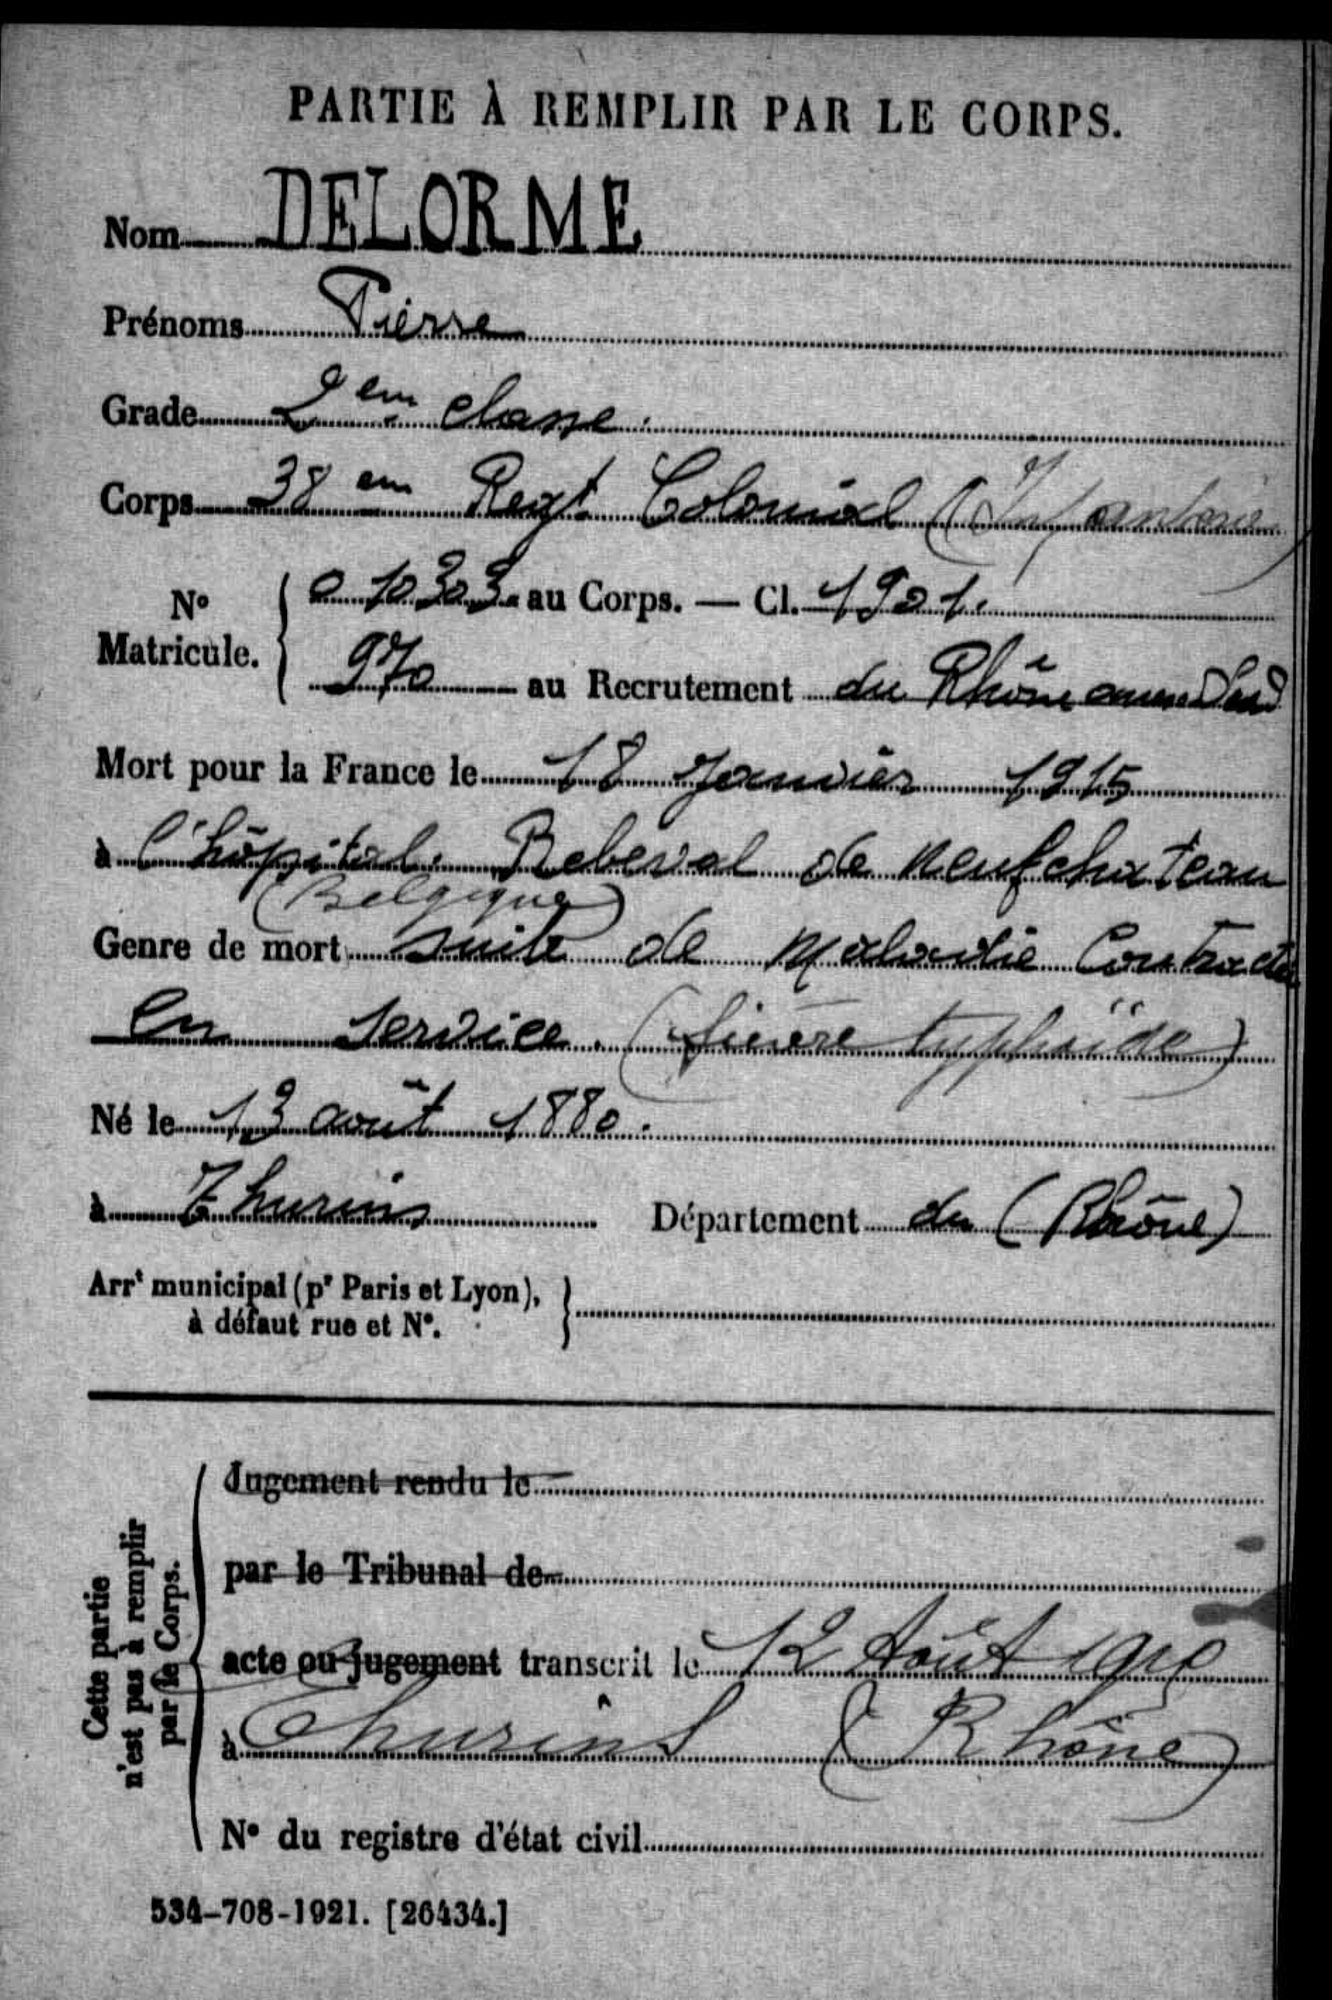 PARTIE À REMPLIR PAR LE CORPS.
Nom DELORME
Prénoms Pierre
Grade 2em classe.
Corps 38em Regt Colonial (Infanterie)
No Matricule. 0 10303 au Corps. — Cl. 1901.
970 au Recrutement du Rhône Sud
Mort pour la France le 18 Janvier 1915
à l'hôpital Rebeval de Neufchateau
(Belgique)
Genre de mort suite de Maladie Contractée
En Service. (fièvre typhoïde)
Né le 13 août 1880.
à Thurins Département du (Rhône)
Arrt municipal (pr Paris et Lyon),
à défaut rue et No.
Cette partie
n'est pas à remplir
par le Corps.
Jugement rendu le
par le Tribunal de
acte ou jugement transcrit le 12 Août
à Thurins (Rhône)
No du registre d'état civil
534-708-1921. [26434.]